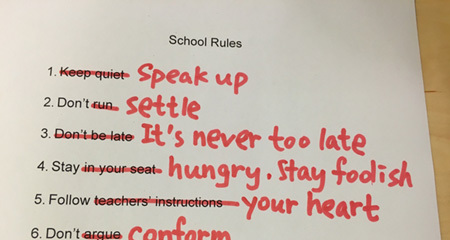 School Rules
1. Keep quiet Speak up
2. Don't run settle
3. Don't be late It's never too late
4. Stay in your seat hungry. Stay foolish
5. Follow teachers' instructions your heart
6. Don't argue conform